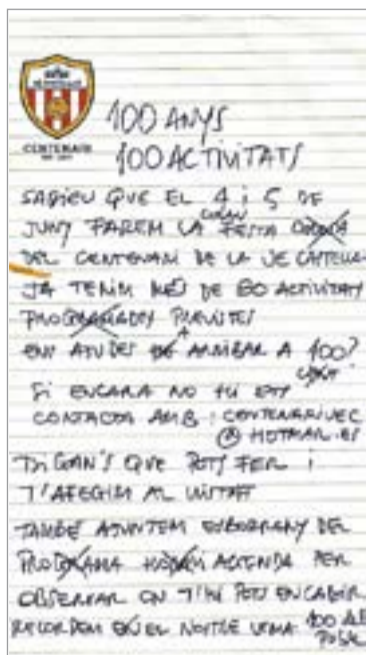 CENTENARI
100 ANYS
100 ACTIVITATS
SABIEU QUE EL 4 i 5 DE
JUNY FAREM LA GRAN FESTA
DEL CENTENARI DE LA UE CASTELLAR
JA TENIM MÉS DE 80 ACTIVITATS
PROGRAMADES PREVISTES
ENS AJUDES A ARRIBAR A 100?
SI ENCARA NO HI ETS
CONTACTA AMB: CENTENARIUEC
@ HOTMAIL.ES
DIGAN'S QUE POTS FER i
T'AFEGIM AL LLISTAT
TAMBÉ ADJUNTEM ESBORRANY DEL
PROGRAMA AGENDA PER
OBSERVAR ON T'HI POTS ENCABIR
RECORDEM EN EL NOSTRE LEMA 100